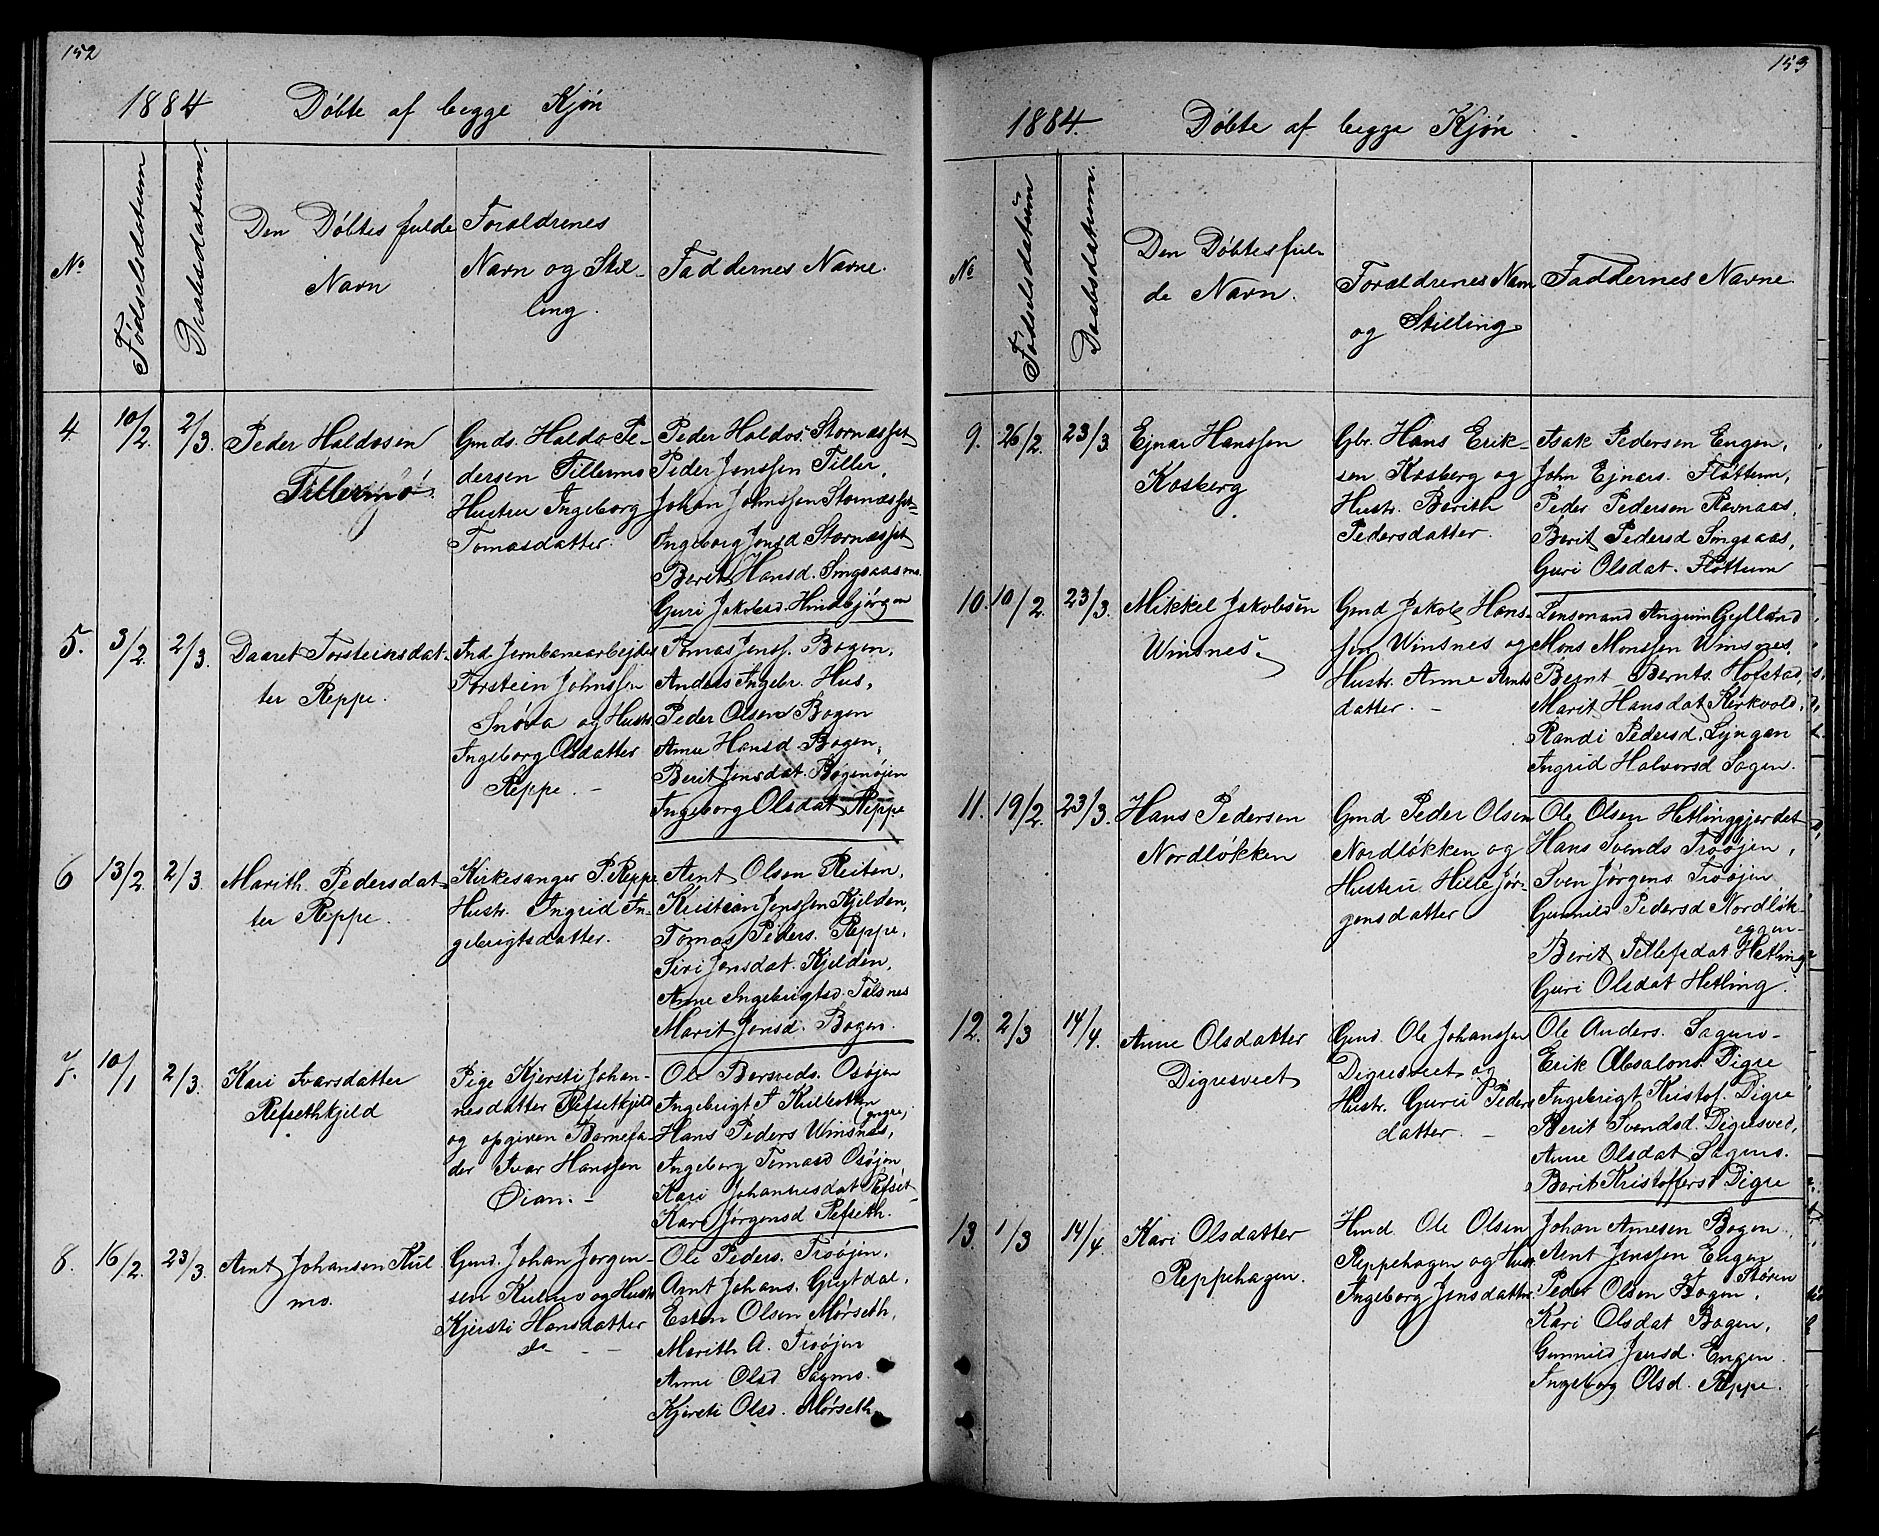 152
1884 Döbte af begge Kjön
No
Födselsdatum
Daabsdatum.
Den Döbtes fulde
Navn
Forældrenes
Navn og Stil-
ling.
Faddernes Navne.
4 10/2. 2/3. Peder Haldosen
Tillermo
Gmds. Haldo Pe-
dersen Tillermo
Hustru Ingeborg
Tomasdatter.
Peder Haldos. Stornæsset
Peder Jonssen Tiller,
Johan Johnssen Stornæsset
Ingeborg Jonsd Stornæsset
Berit Hansd. Singsaasmo.
Guri Jakobsd. Hindbjörgen
5. 3/2. 2/3. Daaret Torsteinsdat-
ter Reppe.
Ind. Jernbanearbejder
Torstein Johnssen
Snöva og Hustr
Ingeborg Olsdatter
Reppe. -
Tomas Jonss. Bogen,
Anders Ingebr. Hus,
Peder Olsen Bogen
Anne Hansd Bogen,
Berit Jonsdat. Bogenöjen
Ingeborg Olsdat Reppe
6 13/2. 2/3. Marith. Pedersdat-
ter Reppe.
Kirkesanger P. Reppe
Hustr. Ingrid In-
gebrigtsdatter.
Arnt Olsen Reiten,
Kristian Jonssen Kjelden,
Tomas Peders. Reppe,
Siri Jonsdat. Kjelden,
Anne Ingebrigtsd. Talsnes
Marit Jonsd. Bogen.
7. 10/1 2/3. Kari Ivarsdatter
Refsethkjeld
Pige Kjersti Johan-
nesdatter Refsetkjeld
og opgiven Barnefa-
der Ivar Hanssen
Öian. -
Ole Bersveds. Osöjen
Ingebrigt A Kulbotten
Hans Peders Winsnes,
Ingeborg Tomasd Osöjen
Kari Johannesdat Refset
Kari Jörgensd Refseth.
8. 16/2. 23/3. Arnt Johansen Kul
mo.
Gmd. Johan Jörgen-
sen Kulmo og Hustr
Kjersti Hansdatter
do - -
Ole Peders. Troöjen,
Arnt Johans. Gylldal,
Esten Olsen Mörseth,
Marith A. Troöjen
Anne Olsd Sagmo.
Kjersti Olsd. Mörseth
153
1884. Döbte af begge Kjön
No
Födselsdatum
Daabsdatum.
Den Döbtes ful-
de Navn.
Forældrenes Navn
og Stilling
Faddernes Navne.
9. 26/2. 23/3. Ejnar Hanssen
Kosberg
Gbr. Hans Erik-
sen Kosberg og
Hustr. Berith
Pedersdatter.
Isak Pedersen Engen,
John Ejnars. Flöttum,
Peder Pedersen Ravnaas,
Berit Pedersd Singsaas,
Guri Olsdat. Flöttum
10. 10/2. 23/3. Mikkel Jakobsen
Winsnes.
Gmd Jakob Hans-
sen Winsnes og
Hustr. Anne Arnts
datter. -
Lensmand Angrim Gylland
Mons Monssen Winsnes,
Bernt Bernts. Hofstad,
Marit Hansdat Kirkvold,
Randi Pedersd. Lyngen
Ingrid Halvorsd Sogen.
11. 19/2. 23/3. Hans Pedersen
Nordlökken
Gmd Peder Olsen
Nordlökken og
Hustru Hille Jör-
gensdatter
Ole Olsen Hetlinggjerdet
Hans Svends Troöjen,
Sven Jörgens Troöjen
Gunnild Pedersd Nordlök-
eggen-
Berit Tillefsdat Hetling
Guri Olsdat Hetling.
12. 2/3 14/4. Anne Olsdatter
Digresveet
Gmd. Ole Johanssen
Digresveet og
Hustr. Guru Peders
datter. -
Ole Anders. Sagmo-
Erik Absalons. Digre
Ingebrigt Kristof. Digre
Berit Svendsd. Digresved,
Anne Olsdat Sagmo.
Berit Kristoffersd Digre
13. 1/3 14/4. Kari Olsdatter
Reppehagen.
Hmd Ole Olsen
Reppehagen og Hust
Ingeborg Jonsdatter.
Johan Arnesen Bogen,
Arnt Jonssen Engen
Peder Olsen Bogen, Stören
Kari Olsdat Bogen,
Gunnild Jonsd. Engen.
Ingeborg Olsd. Reppe.